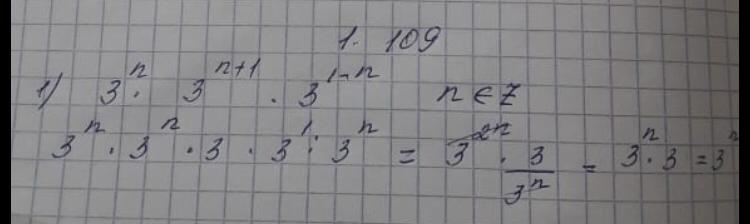 1. 109
1) 3^n · 3^{n+1} · 3^{1-n} n ∈ Z
3^n · 3^n · 3 · 3^1 : 3^n = 3^{2n} · 3 / 3^n = 3^n · 3 = 3^n